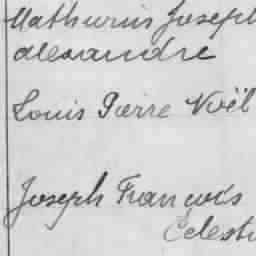 Mathurin Joseph
alexandre
Louis Pierre Noël
Joseph François
Celest